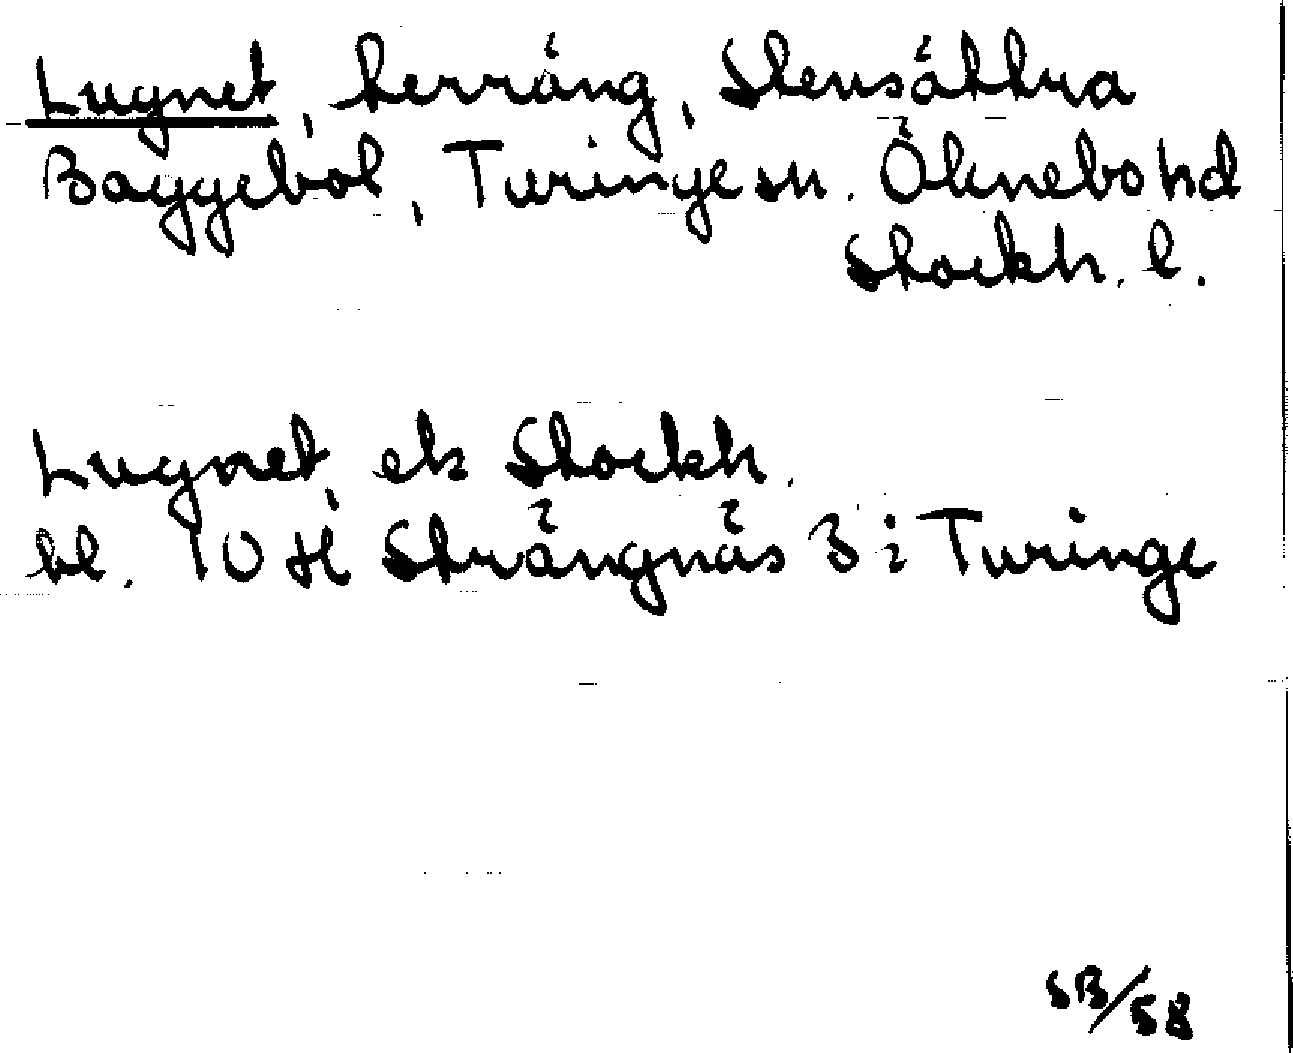 Lugnet, terräng, Stensättra
Baggebol, Turinge sn. Öknebo hd
Stockh. l.
Lugnet, ek Stockh.
bl. 10 H Strängnäs 3 i Turinge
SB/58